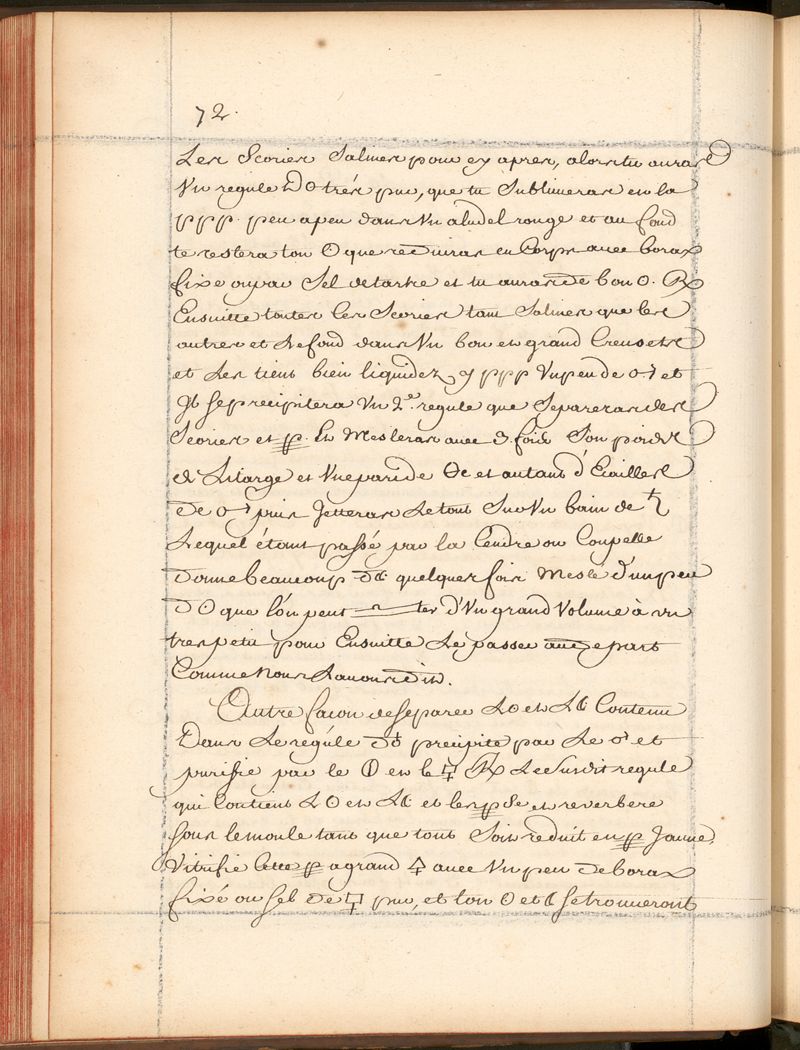 72.
Les Scories Salines pour cy apres, alors tu auras
Vn regule d ☉ trés pur, que tu Sublimeras en la
ppp. peu a peu dans Vn aludel rouge et au fond
te restera ton ☉ que reduiras en Corps auec borax
fixe ou par Sel de tartre et tu auras de bon ☉. ℞
Ensuitte toutes les Scories tant Salines que les
autres et Refond dans Vn bon et grand Creuset
et Les tiens bien liquides, y ppp Vn peu de ♂ et
Il se precipitera Vn 2e. regule que Separeras des
Scories et pp. Et Mesleras auec 3. fois Son poids
de Litarge et Vne par de et autant d'Ecailles
de ♂ puis Jetteras Le tout Sur Vn bain de ♄
Lequel étant passé par la Cendre ou Coupelle
donne beaucoup d☾ quelques fois Meslé d'un peu
d ☉ que l'on peut ter d'Vn grand Volume à un
tres petit pour Ensuitte Le passer au depart
Comme Nous L'auons dit.
Outre facon de Separer L☉ et L☾ Contenu
Dans Le regule d♁ precipite par Le ♂ et
purifie par le en le ℞ Le Susdit regule
qui Contient L☉ et L☾ et le pp Se et reverbere
sous le moule tant que tout Soit reduit en pp Jaune.
Vitrifie Cette pp a grand auec Vn peu de borax
fixé ou Sel de pur, et ton ☉ et ☾ se trouueront